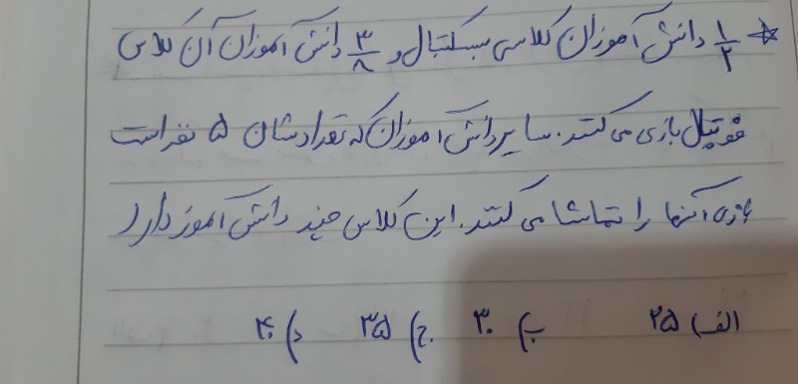 * ۱/۲ دانش آموزان کلاسی بسکتبال و ۳/۸ دانش آموزان آن کلاس
فوتبال بازی می کنند. سایر دانش آموزان که تعدادشان ۵ نفر است
بازی آنها را تماشا می کنند. این کلاس چند دانش آموز دارد
الف) ۲۵ ب) ۳۰ ج) ۳۵ د) ۴۰